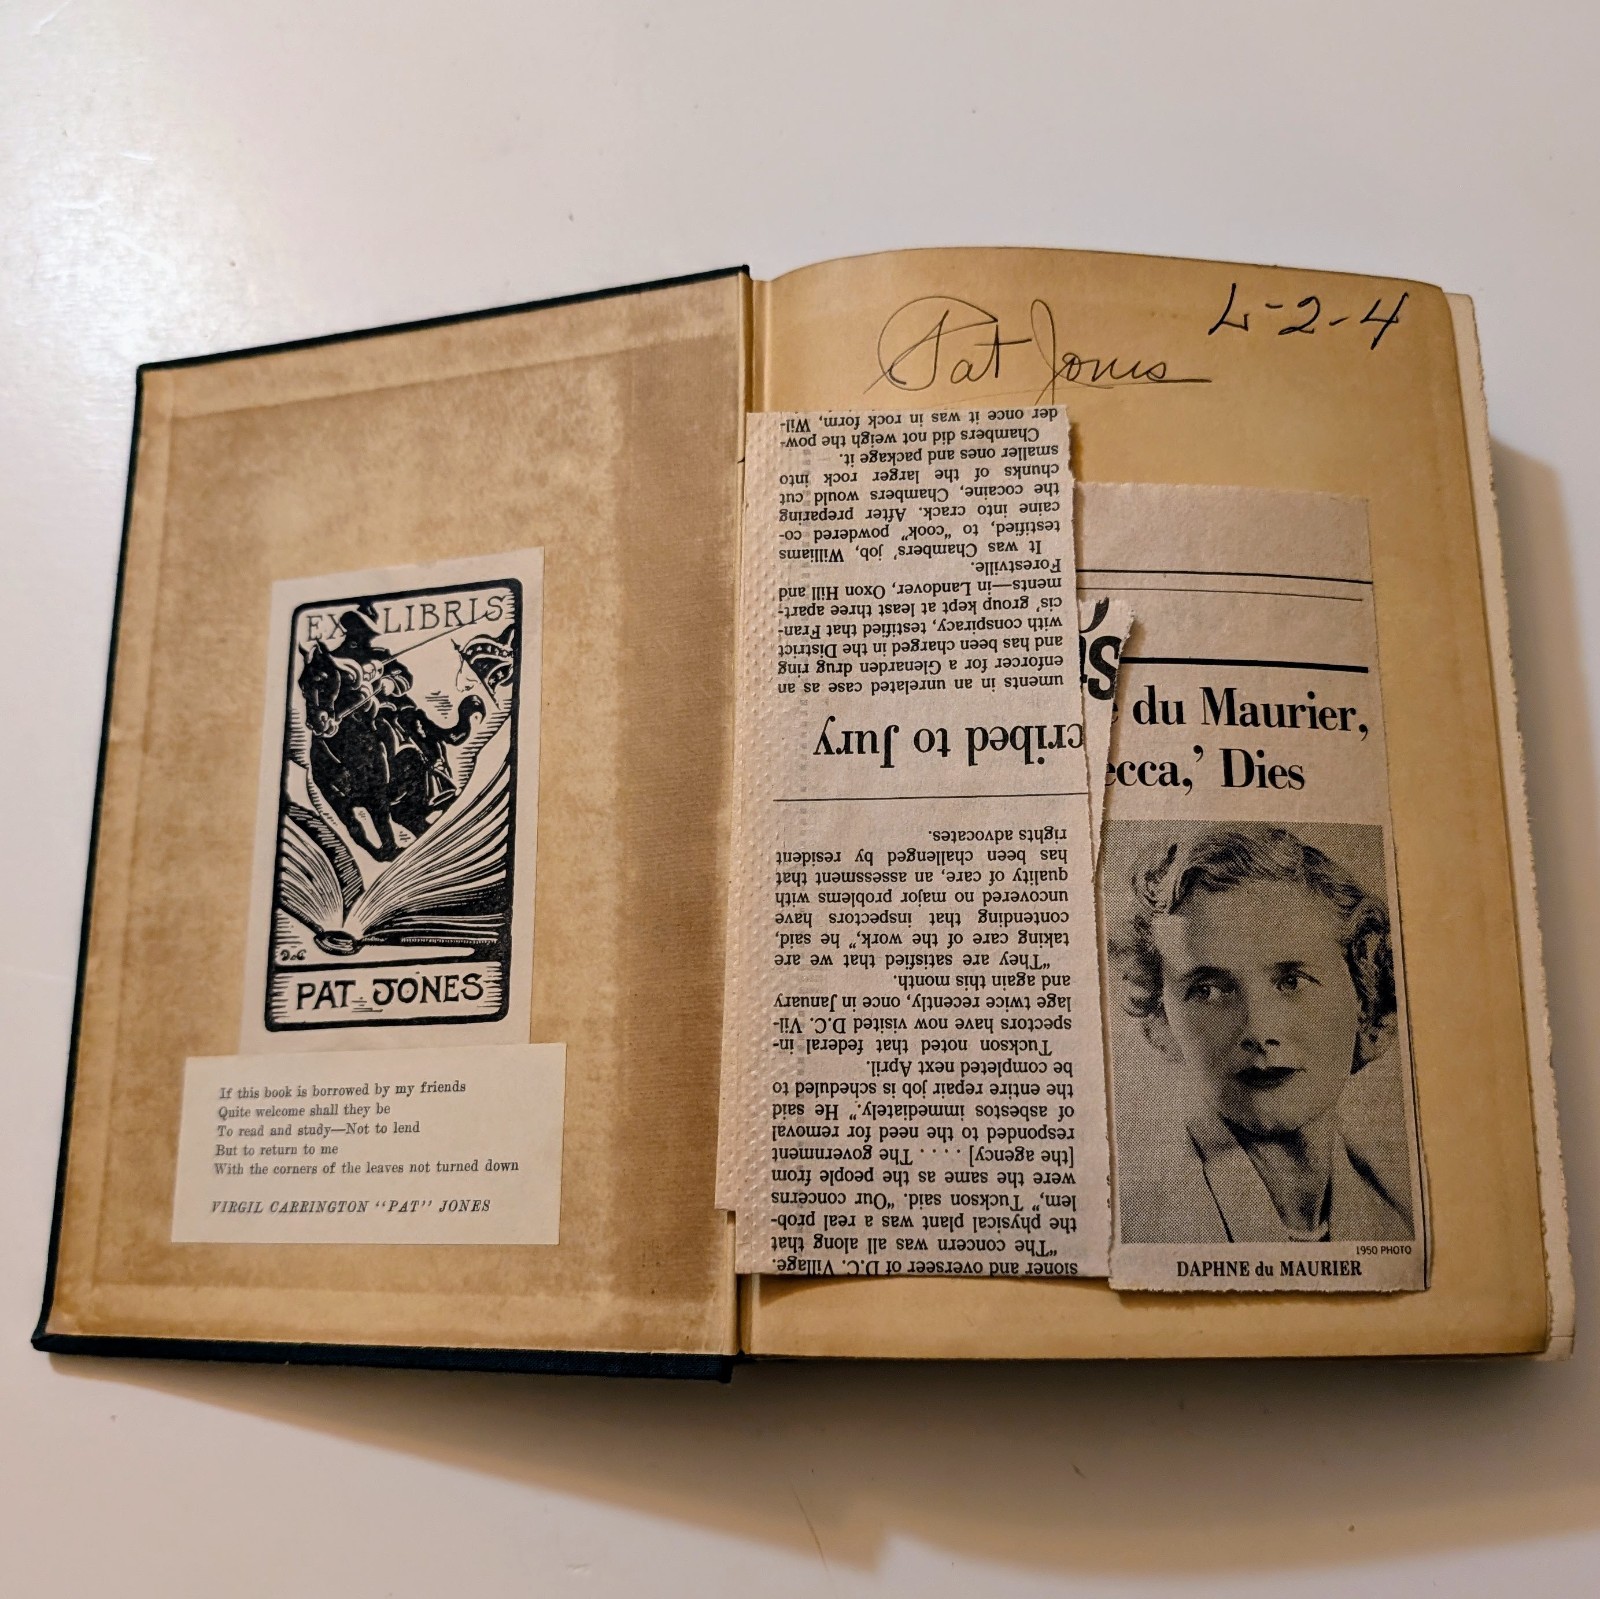 EX LIBRIS
PAT JONES
If this book is borrowed by my friends
Quite welcome shall they be
To read and study—Not to lend
But to return to me
With the corners of the leaves not turned down
VIRGIL CARRINGTON "PAT" JONES
Pat Jones
L-2-4
sioner and overseer of D.C. Village.
"The concern was all along that
the physical plant was a real prob-
lem," Tuckson said. "Our concerns
were the same as the people from
[the agency] . . . . The government
responded to the need for removal
of asbestos immediately." He said
the entire repair job is scheduled to
be completed next April.
Tuckson noted that federal in-
spectors have now visited D.C. Vil-
lage twice recently, once in January
and again this month.
"They are satisfied that we are
taking care of the work," he said,
contending that inspectors have
uncovered no major problems with
quality of care, an assessment that
has been challenged by resident
rights advocates.
cribed to Jury
uments in an unrelated case as an
enforcer for a Glenarden drug ring
and has been charged in the District
with conspiracy, testified that Fran-
cis' group kept at least three apart-
ments—in Landover, Oxon Hill and
Forestville.
It was Chambers' job, Williams
testified, to "cook" powdered co-
caine into crack. After preparing
the cocaine, Chambers would cut
chunks of the larger rock into
smaller ones and package it.
Chambers did not weigh the pow-
der once it was in rock form, Wil-
du Maurier,
ecca,' Dies
1950 PHOTO
DAPHNE du MAURIER